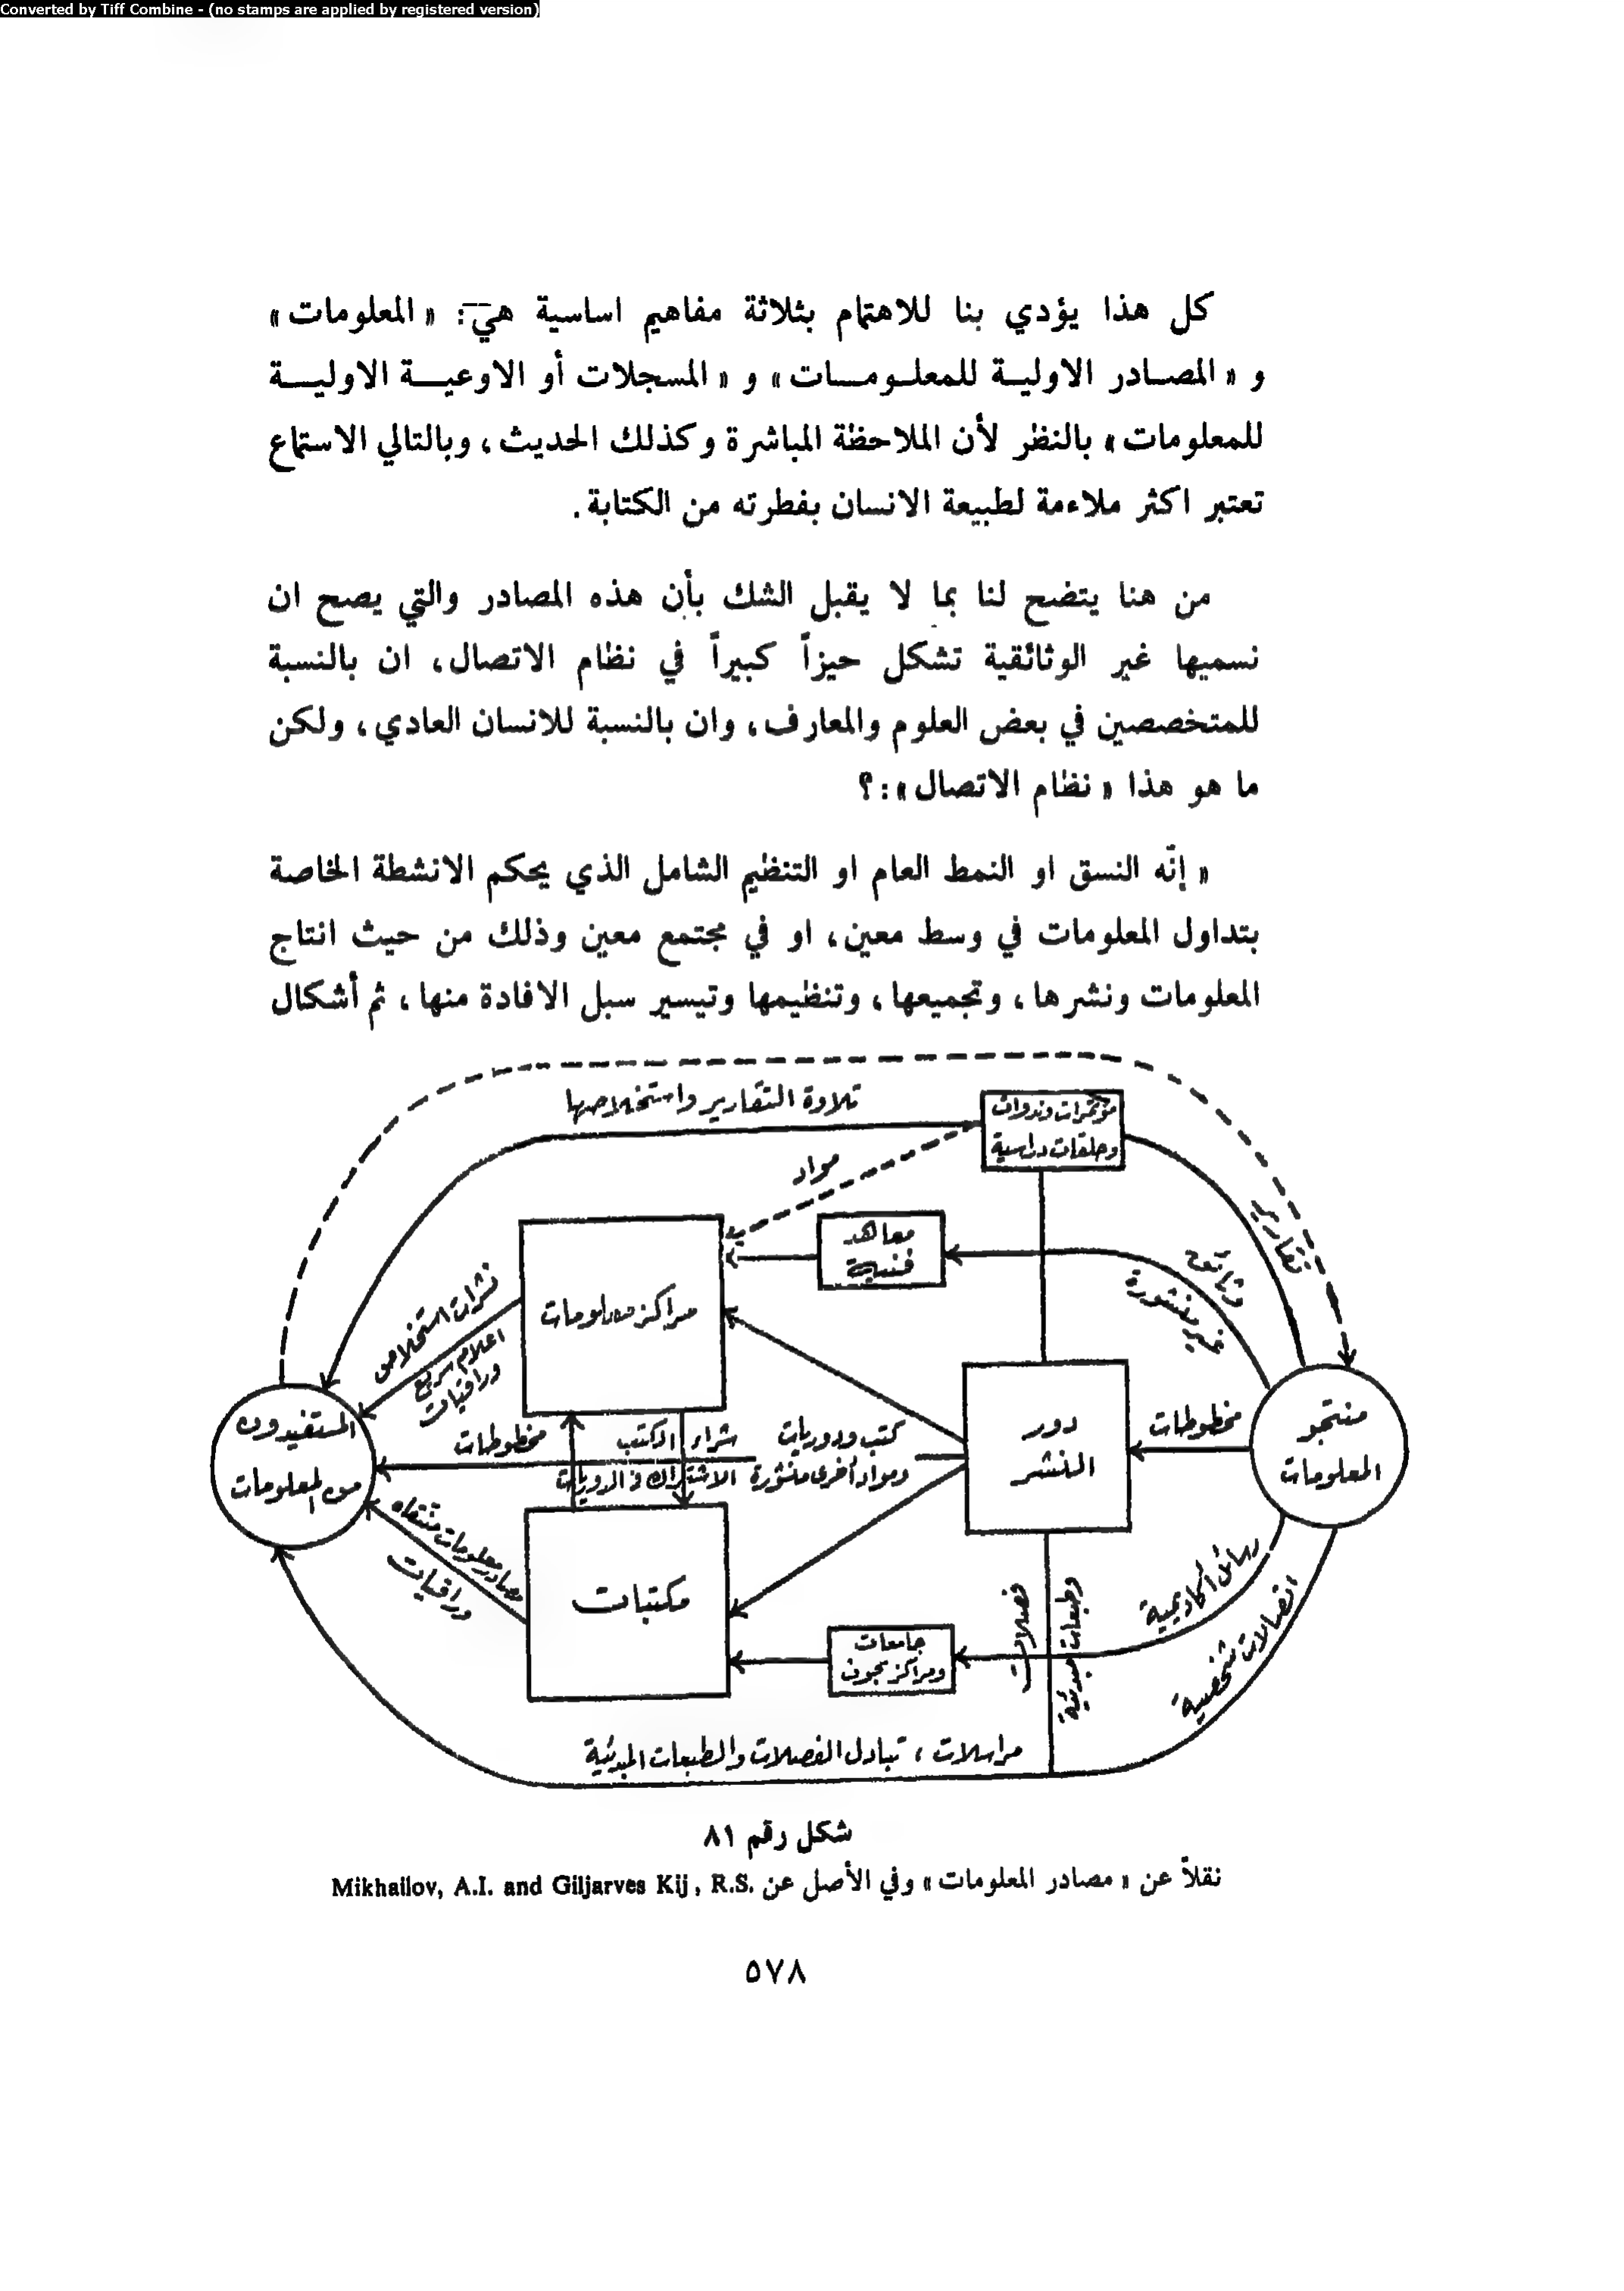 Converted by Tiff Combine - (no stamps are applied by registered version)
كل هذا يؤدي بنا للاهتمام بثلاثة مفاهيم اساسية هي: « المعلومات »
و « المصادر الاولية للمعلومات » و « المسجلات أو الاوعية الاولية
للمعلومات » بالنظر لأن الملاحظة المباشرة وكذلك الحديث، وبالتالي الاستماع
تعتبر اكثر ملاءمة لطبيعة الانسان بفطرته من الكتابة.
من هنا يتضح لنا بما لا يقبل الشك بأن هذه المصادر والتي يصح ان
نسميها غير الوثائقية تشكل حيزاً كبيراً في نظام الاتصال، ان بالنسبة
للمتخصصين في بعض العلوم والمعارف، وان بالنسبة للانسان العادي، ولكن
ما هو هذا « نظام الاتصال »:؟
« إنّه النسق او النمط العام او التنظيم الشامل الذي يحكم الانشطة الخاصة
بتداول المعلومات في وسط معين، او في مجتمع معين وذلك من حيث انتاج
المعلومات ونشرها، وتجميعها، وتنظيمها وتيسير سبل الافادة منها، ثم أشكال
تلاوة التقارير واستخلاصها
مؤتمرات وندوات
وحلقات دراسية
مواد
تقارير
معاهد
فنية
وثائق
غير منشورة
مراكز معلومات
نشرات استخلاص
اعلام سريع
وراقيات
منتجو
المعلومات
مخطوطات
دور
النشر
كتب ودوريات
ومواد أخرى منشورة
شراء الكتب
الاشتراك في الدوريات
مخطوطات
المستفيدون
من المعلومات
مصادر معلومات منتقاه
وراقيات
مكتبات
جامعات
ومراكز بحوث
فصلات
وطبعات مبدئية
رسائل أكاديمية
اتصالات شخصية
مراسلات، تبادل الفصلات والطبعات المبدئية
شكل رقم ٨١
نقلاً عن « مصادر المعلومات » وفي الأصل عن Mikhailov, A.I. and Giljarves Kij, R.S.
٥٧٨